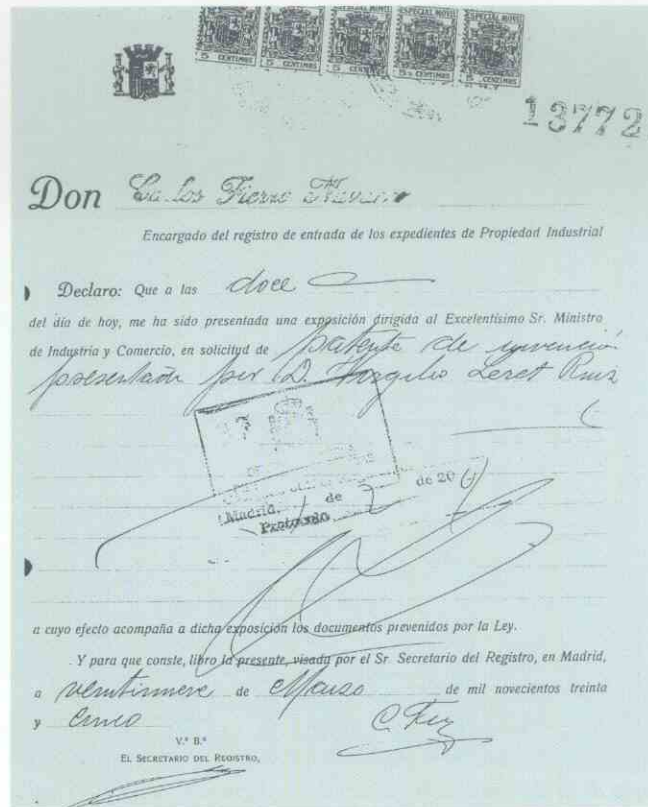 ESPECIAL MOVIL
5 CENTIMOS
ESPECIAL MOVIL
5 CENTIMOS
ESPECIAL MOVIL
5 CENTIMOS
ESPECIAL MOVIL
5 CENTIMOS
ESPECIAL MOVIL
5 CENTIMOS
13772
Don Carlos Fierro
Encargado del registro de entrada de los expedientes de Propiedad Industrial
Declaro: Que a las doce
del día de hoy, me ha sido presentada una exposición dirigida al Excelentísimo Sr. Ministro
de Industria y Comercio, en solicitud de patente de invención
presentada por D. Virgilio Leret Ruiz
Madrid, de de 20
Protocolo
a cuyo efecto acompaña a dicha exposición los documentos prevenidos por la Ley.
Y para que conste, libro la presente, visada por el Sr. Secretario del Registro, en Madrid,
a veintinueve de Marzo de mil novecientos treinta
y cinco
V.º B.º
EL SECRETARIO DEL REGISTRO,